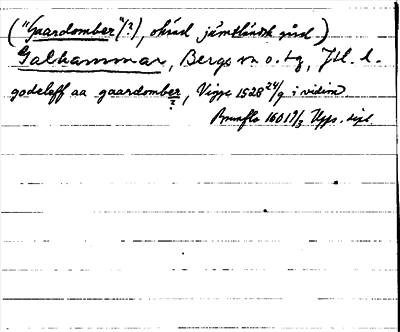 ("Gaardomber"(?), okänd jämtländsk gård.)
Galhammar, Bergs sn o. tg, Jtl. l.
godeleff aa gaardomber, Vigge 1528 24/9 i vidim.
?
Brunflo 1601 9/3 Upps. dipl.